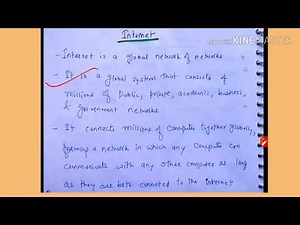 Internet
- Internet is a global network of networks
- It is a global system that consists of
millions of public, private, academic, business,
& government networks
- It connects millions of computers together globally,
forming a network in which any computer can
communicate with any other computer as long
as they are both connected to the internet
KINEMASTER